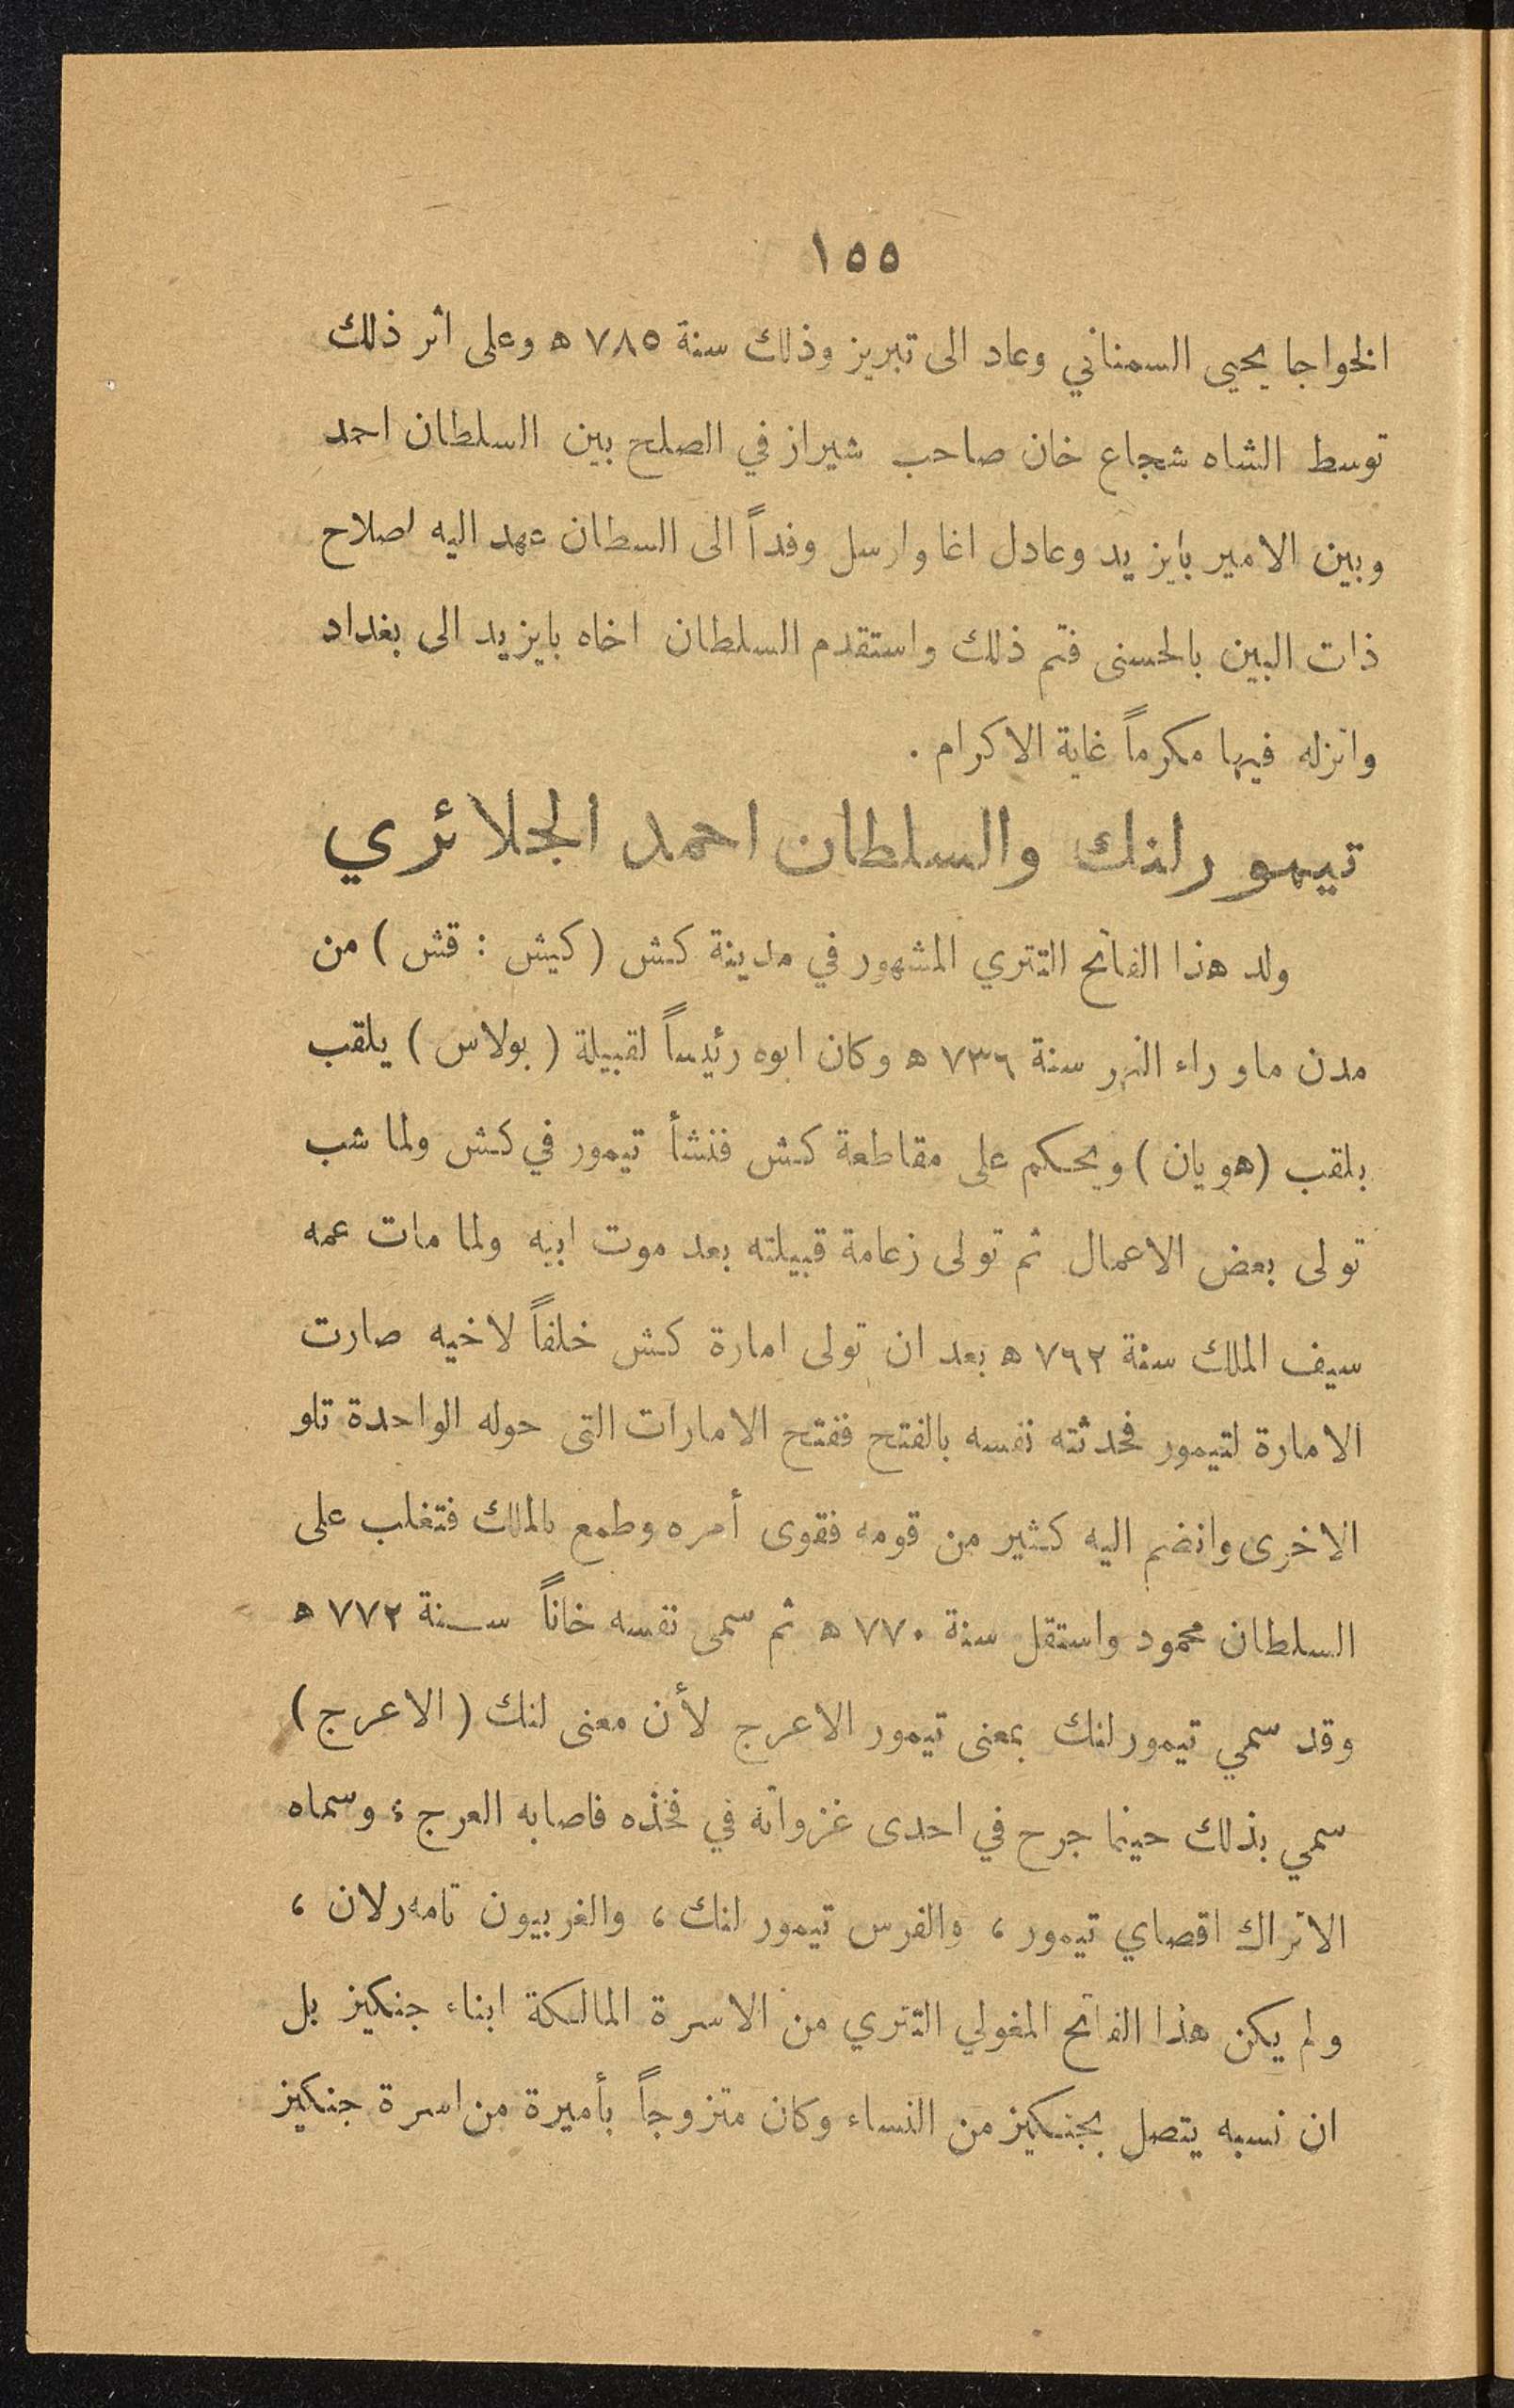 ١٥٥
الخواجا يحيى السمناني وعاد الى تبريز وذلك سنة ٧٨٥ ه وعلى اثر ذلك
توسط الشاه شجاع خان صاحب شيراز في الصلح بين السلطان احمد
وبين الامير بايزيد وعادل اغا وارسل وفداً الى السطان عهد اليه اصلاح
ذات البين بالحسنى فتم ذلك واستقدم السلطان اخاه بايزيد الى بغداد
وانزله فيها مكرماً غاية الاكرام .
تيمورلنك والسلطان احمد الجلائري
ولد هذا الفاتح التتري المشهور في مدينة كش ( كيش : قش ) من
مدن ماوراء النهر سنة ٧٣٦ ه وكان ابوه رئيساً لقبيلة ( بولاس ) يلقب
بلقب (هويان ) ويحكم على مقاطعة كش فنشأ تيمور في كش ولما شب
تولى بعض الاعمال ثم تولى زعامة قبيلته بعد موت ابيه ولما مات عمه
سيف الملك سنة ٧٦٢ ه بعد ان تولى امارة كش خلفاً لاخيه صارت
الامارة لتيمور فحدثته نفسه بالفتح ففتح الامارات التى حوله الواحدة تلو
الاخرى وانضم اليه كثير من قومه فقوى أمره وطمع بالملك فتغلب على
السلطان محمود واستقل سنة ٧٧٠ ه ثم سمى نفسه خاناً سنة ٧٧٢ ه
وقد سمي تيمورلنك بمعنى تيمور الاعرج لأن معنى لنك ( الاعرج )
سمي بذلك حينما جرح في احدى غزواته في فخذه فاصابه العرج ؛ وسماه
الاتراك اقصاي تيمور ، والفرس تيمور لنك ، والغربيون تامه‌رلان ،
ولم يكن هذا الفاتح المغولي التتري من الاسرة المالكة ابناء جنكيز بل
ان نسبه يتصل بجنكيز من النساء وكان متزوجاً بأميرة من اسرة جنكيز